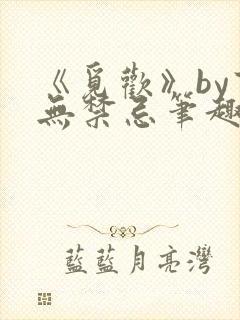 《覓歡》by
無禁忌筆趣
藍藍月亮灣